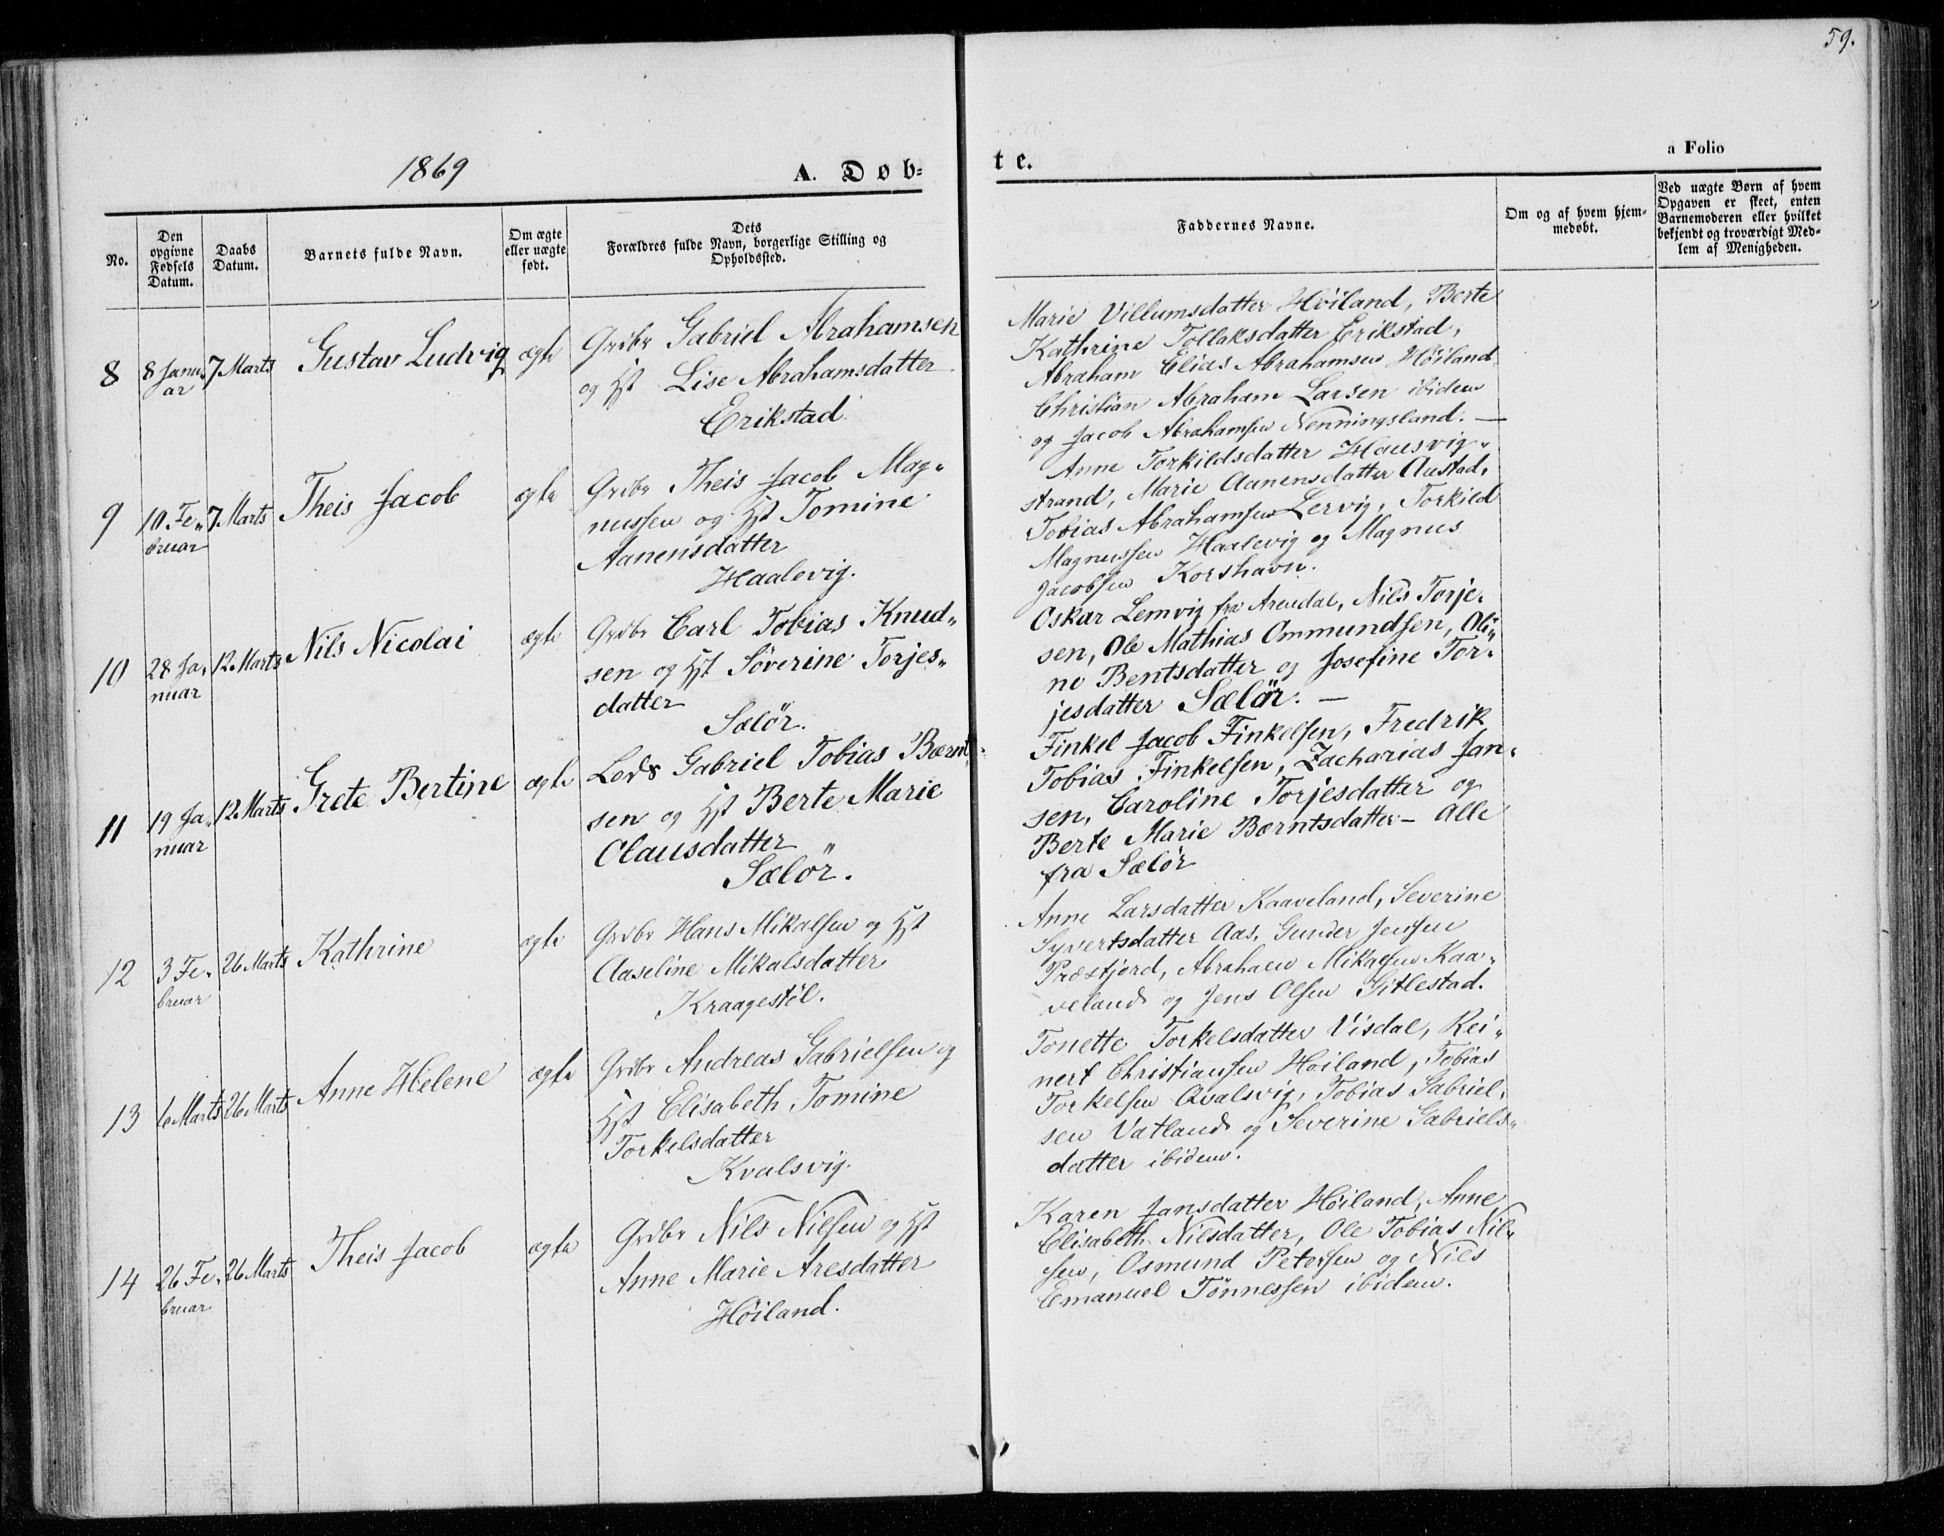 59.
1869
A. Døb-
te.
a Folio
No.
Den
opgivne
Fødsels
Datum.
Daabs
Datum.
Barnets fulde Navn.
Om ægte
eller uægte
født.
Dets
Forældres fulde Navn, borgerlige Stilling og
Opholdssted.
Faddernes Navne.
Om og af hvem hjem-
medøbt.
Ved uægte Børn af hvem
Opgaven er skeet, enten
Barnemoderen eller hvilket
bekjendt og troværdigt Med-
lem af Menigheden.
8
8 Janu-
ar
7 Marts
Gustav Ludvig
ægte
Grdbr Gabriel Abrahamsen
og Hst Lise Abrahamsdatter
Erikstad.
Marie Villumsdatter Höiland, Berte
Kathrine Tollaksdatter Erikstad,
Abraham Elias Abrahamsen Höiland
Christian Abraham Larsen ibidem
og Jacob Abrahamsen Nenningsland. —
9
10 Fe-
bruar
7 Marts
Theis Jacob
ægte
Grdbr Theis Jacob Mag-
nussen og Hst Tomine
Aanensdatter
Haalevig.
Anne Torkildsdatter Hausvig-
strand, Marie Aanensdatter Austad,
Tobias Abrahamsen Lervig, Torkild
Magnussen Haalevig og Magnus
Jacobsen Korshavn.
10
28 Ja-
nuar
12 Marts
Nils Nicolai
ægte
Grdbr Carl Tobias Knud-
sen og Hst Söverine Torjes-
datter
Sælör.
Oskar Lemvig fra Arendal, Nils Torje-
sen, Ole Mathias Ommundsen, Oli-
ne Bentsdatter og Josefine Tor-
jesdatter Sælör. —
11
19 Ja-
nuar
12 Marts
Grete Bertine
ægte
Lods Gabriel Tobias Bærnt-
sen og Hst Berte Marie
Olausdatter
Sælör.
Finkel Jacob Finkelsen, Fredrik
Tobias Finkelsen, Zacharias Jan-
sen, Caroline Torjesdatter og
Berte Marie Bærntsdatter - Alle
fra Sælör
12
3 Fe-
bruar
26 Marts
Kathrine
ægte
Grdbr Hans Mikalsen og Hst
Aaseline Mikalsdatter
Kraagestöl.
Anne Larsdatter Kaaveland, Severine
Syvertsdatter Aas, Gunder Jensen
Præstjord, Abraham Mikalsen Kaa-
veland og Jens Olsen Gitlestad.
13
6 Marts
26 Marts
Anne Helene
ægte
Grdbr Andreas Gabrielsen og
Hst Elisabeth Tomine
Torkelsdatter
Kvalsvig.
Tonette Torkelsdatter Visdal, Rei-
nert Christiansen Höiland, Tobias
Torkelsen Qvalsvig, Tobias Gabriel-
sen Vatland og Severine Gabriels-
datter ibidem.
14
26 Fe-
bruar
26 Marts
Theis Jacob
ægte
Grdbr Nils Nilsen og Hst
Anne Marie Aresdatter
Höiland.
Karen Jansdatter Höiland, Anne
Elisabeth Nilsdatter, Ole Tobias Nil-
sen, Osmund Petersen og Nils
Emanuel Tönnessen ibidem.